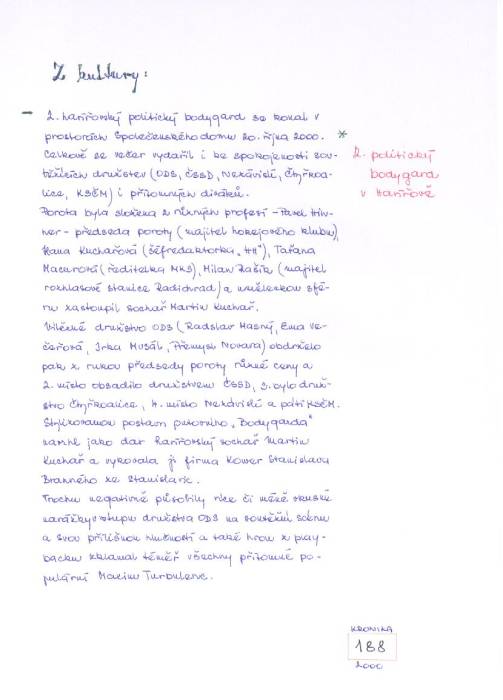 Z kultury:
- 2. havířovský politický bodygard se konal v
prostorách Společenského domu 20. října 2000. *
Celkově se večer vydařil i ke spokojenosti sou-
těžících družstev (ODS, ČSSD, Nezávislí, Čtyřkoa-
lice, KSČM) i přítomných diváků.
2. politický
bodygard
v Havířově
Porota byla složena z různých profesí - Pavel
ner - předseda poroty (majitel hokejového klubu),
Hana Kuchařová (šéfredaktorka "HH"), Taťana
Macurová (ředitelka MKS), Milan Rašík (majitel
rozhlasové stanice Radiohrad) a uměleckou sfé-
ru zastoupil sochař Martin Kuchař.
Vítězné družstvo ODS (Radslav Hasný, Ema Ve-
čeřová, Jirka Musál, Přemysl Novara) obdrželo
pak z rukou předsedy poroty různé ceny a
2. místo obsadilo družstvem ČSSD, 3. bylo druž-
stvo Čtyřkoalice, 4. místo Nezávislí a pátí KSČM.
Stylizovanou postavu putovního "Bodygarda"
navrhl jako dar havířovský sochař Martin
Kuchař a vykovala ji firma Kower Stanislava
Branného ze Stanislavic.
Trochu negativně působily více či méně vkusné
narážky vstupu družstva ODS na soutěžní scénu
a svou přílišnou hlučností a také hrou z play-
backu zklamal téměř všechny přítomné po-
pulární Maxim Turbulenc.
KRONIKA
188
2000